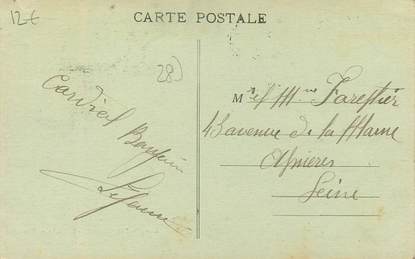 12€
CARTE POSTALE
28
Cordial Bonjour
Lejeune
M r et Mme Farestier
43 avenue de la Marne
Asnieres
Seine